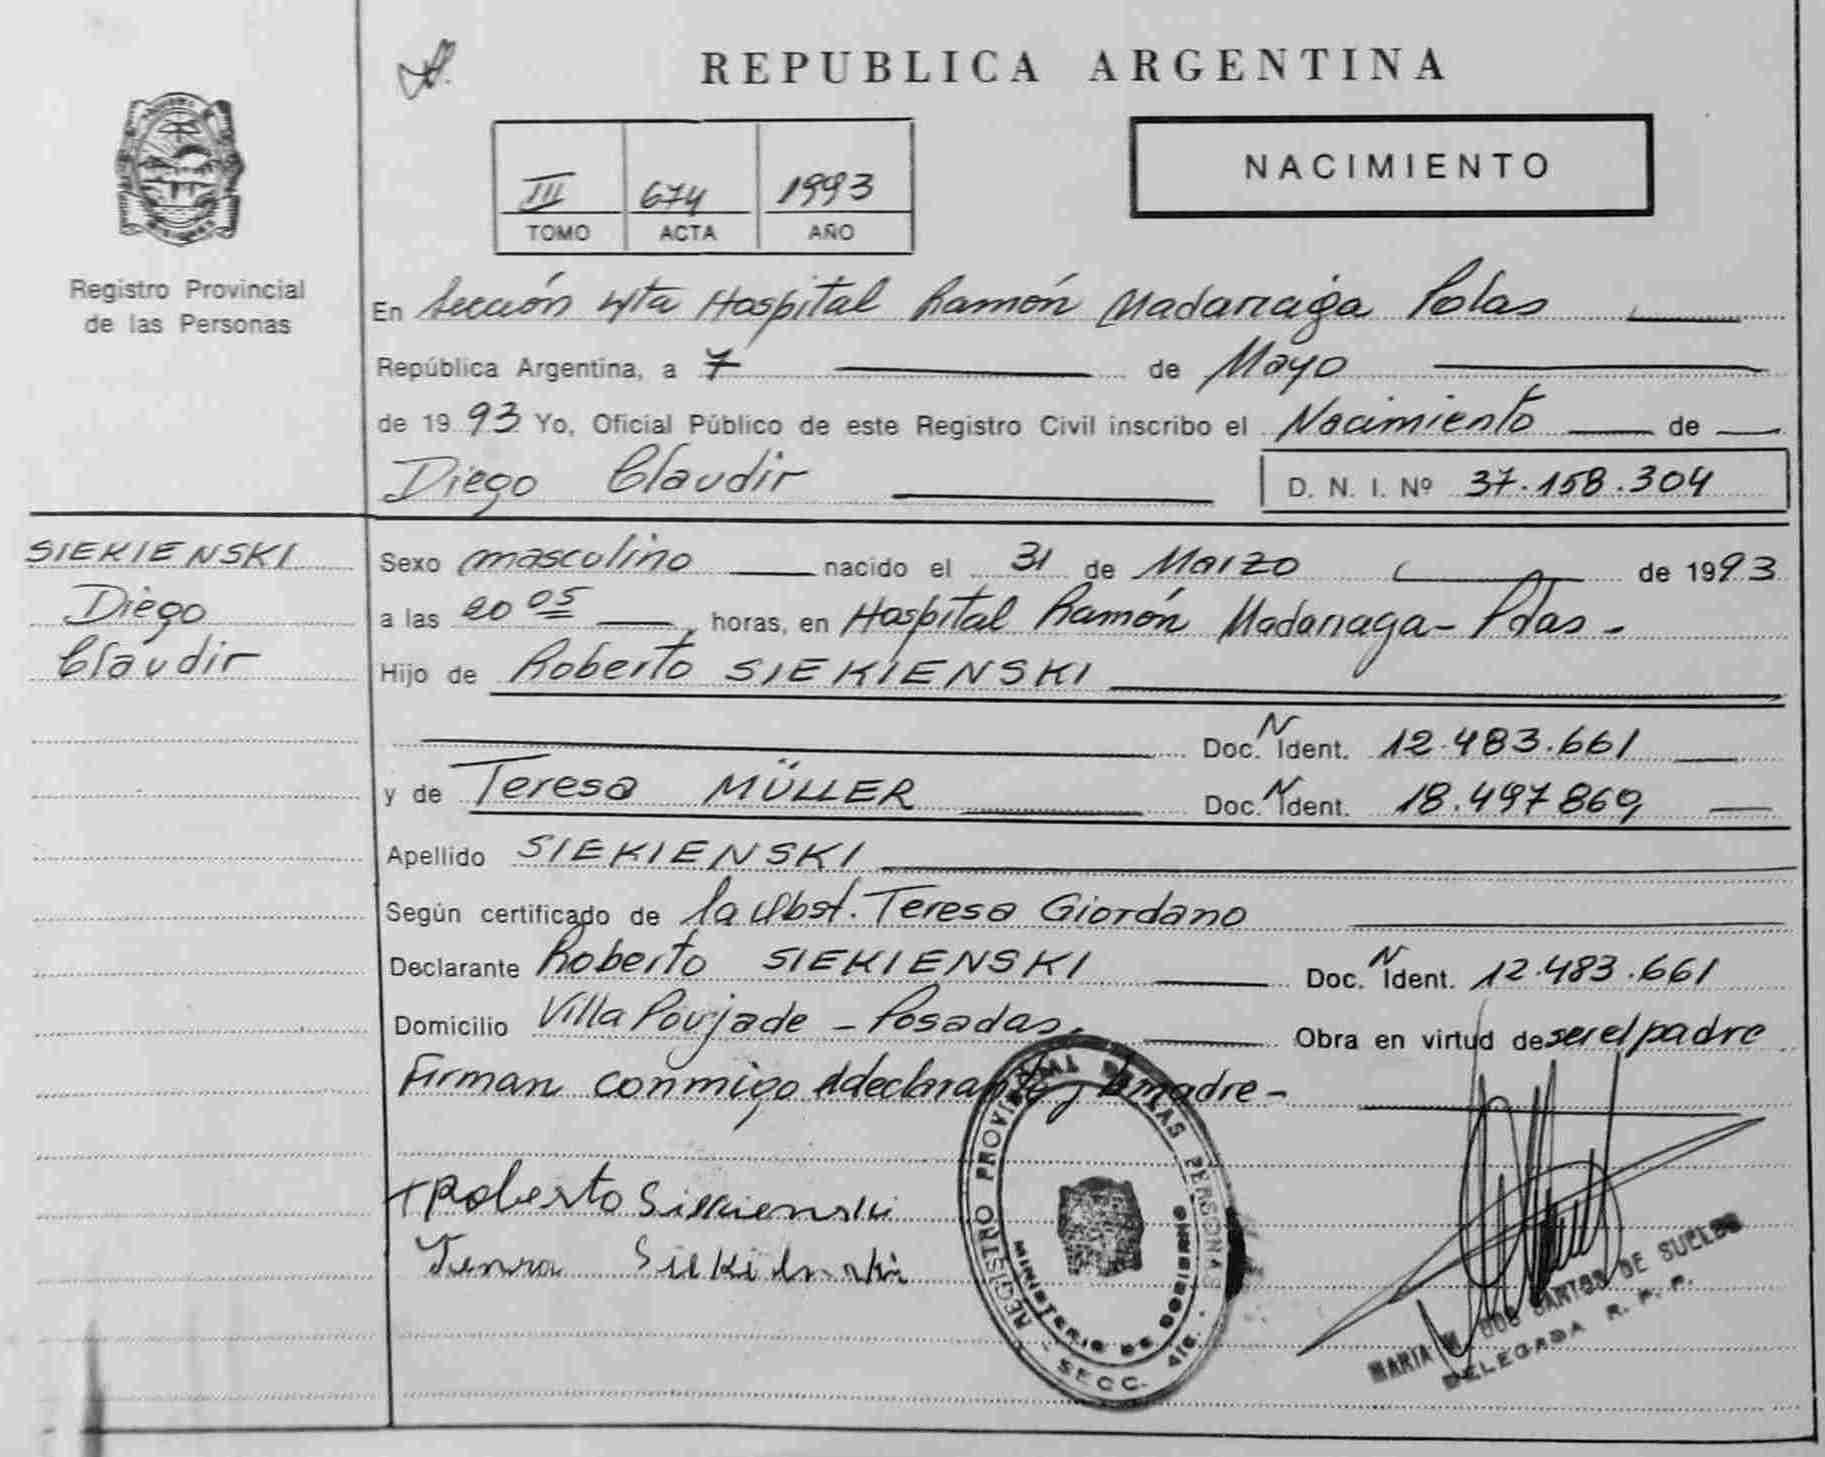 REPUBLICA ARGENTINA
NACIMIENTO
III 674 1993
TOMO ACTA AÑO
Registro Provincial
de las Personas
En Sección 4ta Hospital Ramón Madariaga Pdas
República Argentina, a 7 de Mayo
de 1993 Yo, Oficial Público de este Registro Civil inscribo el Nacimiento de
Diego Claudir D. N. I. Nº 37.158.304
SIEKIENSKI
Diego
Claudir
Sexo masculino nacido el 31 de Marzo de 1993
a las 20 05 horas, en Hospital Ramón Madariaga - Pdas -
Hijo de Roberto SIEKIENSKI
Doc. N Ident. 12.483.661
y de Teresa MÜLLER Doc. N Ident. 18.497869
Apellido SIEKIENSKI
Según certificado de la Obst. Teresa Giordano
Declarante Roberto SIEKIENSKI Doc. N Ident. 12.483.661
Domicilio Villa Poujade - Posadas. Obra en virtud de ser el padre
Firman conmigo el declarante y la madre -
Roberto Siekienski
Siekienski
REGISTRO PROVINCIAL DE LAS PERSONAS
MINISTERIO DE GOBIERNO
SECC. 4ta.
MARIA M. DOS SANTOS DE SUELDO
DELEGADA R. P. P.